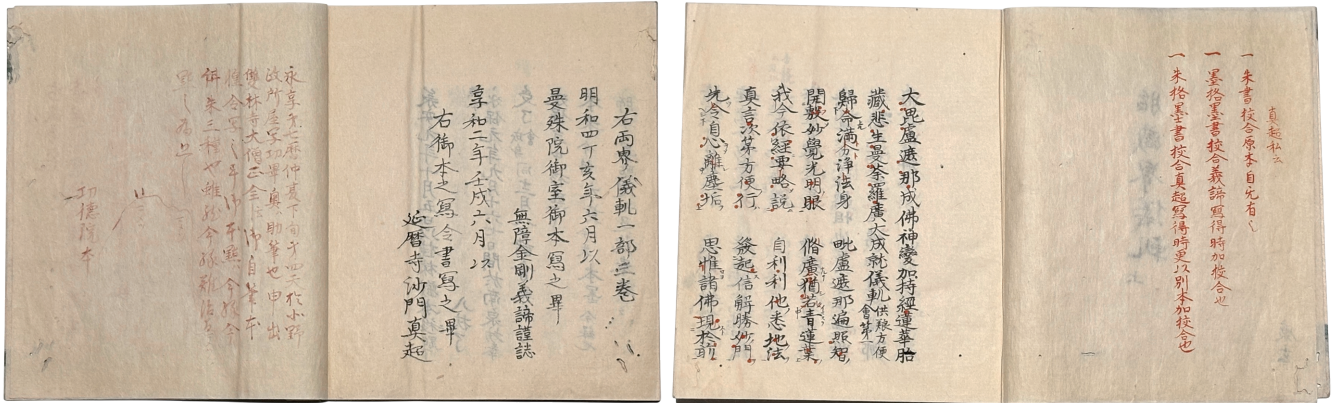 真超私云
一朱書校合原本自元有之
一墨格墨書校合義諦寫得時加校合也
一朱格墨書校合真超寫得時更以別本加校合也
大毘盧遮那成佛神變加持經蓮華胎
藏悲生曼荼羅廣大成就儀軌供養方便會第一
歸命滿分淨法身 毗盧遮那遍照智
開敷妙覺光明眼 脩廣猶若青蓮葉
我今依經要略說 自利利他悉地法
真言次第方便行 發起信解勝妙門
先令自心離塵垢 思惟諸佛現於前
右両界儀軌一部三巻
明和四丁亥年六月以
曼殊院御室御本寫之畢
無障金剛義諦謹誌
享和二年壬戌六月以
右御本之寫令書寫之畢
延暦寺沙門真超
永享第七暦仲夏下旬第四天於小野
政所屋写功畢奥助筆也申出
雙林寺大僧正御自筆本
併朱三種也雖
功徳院本